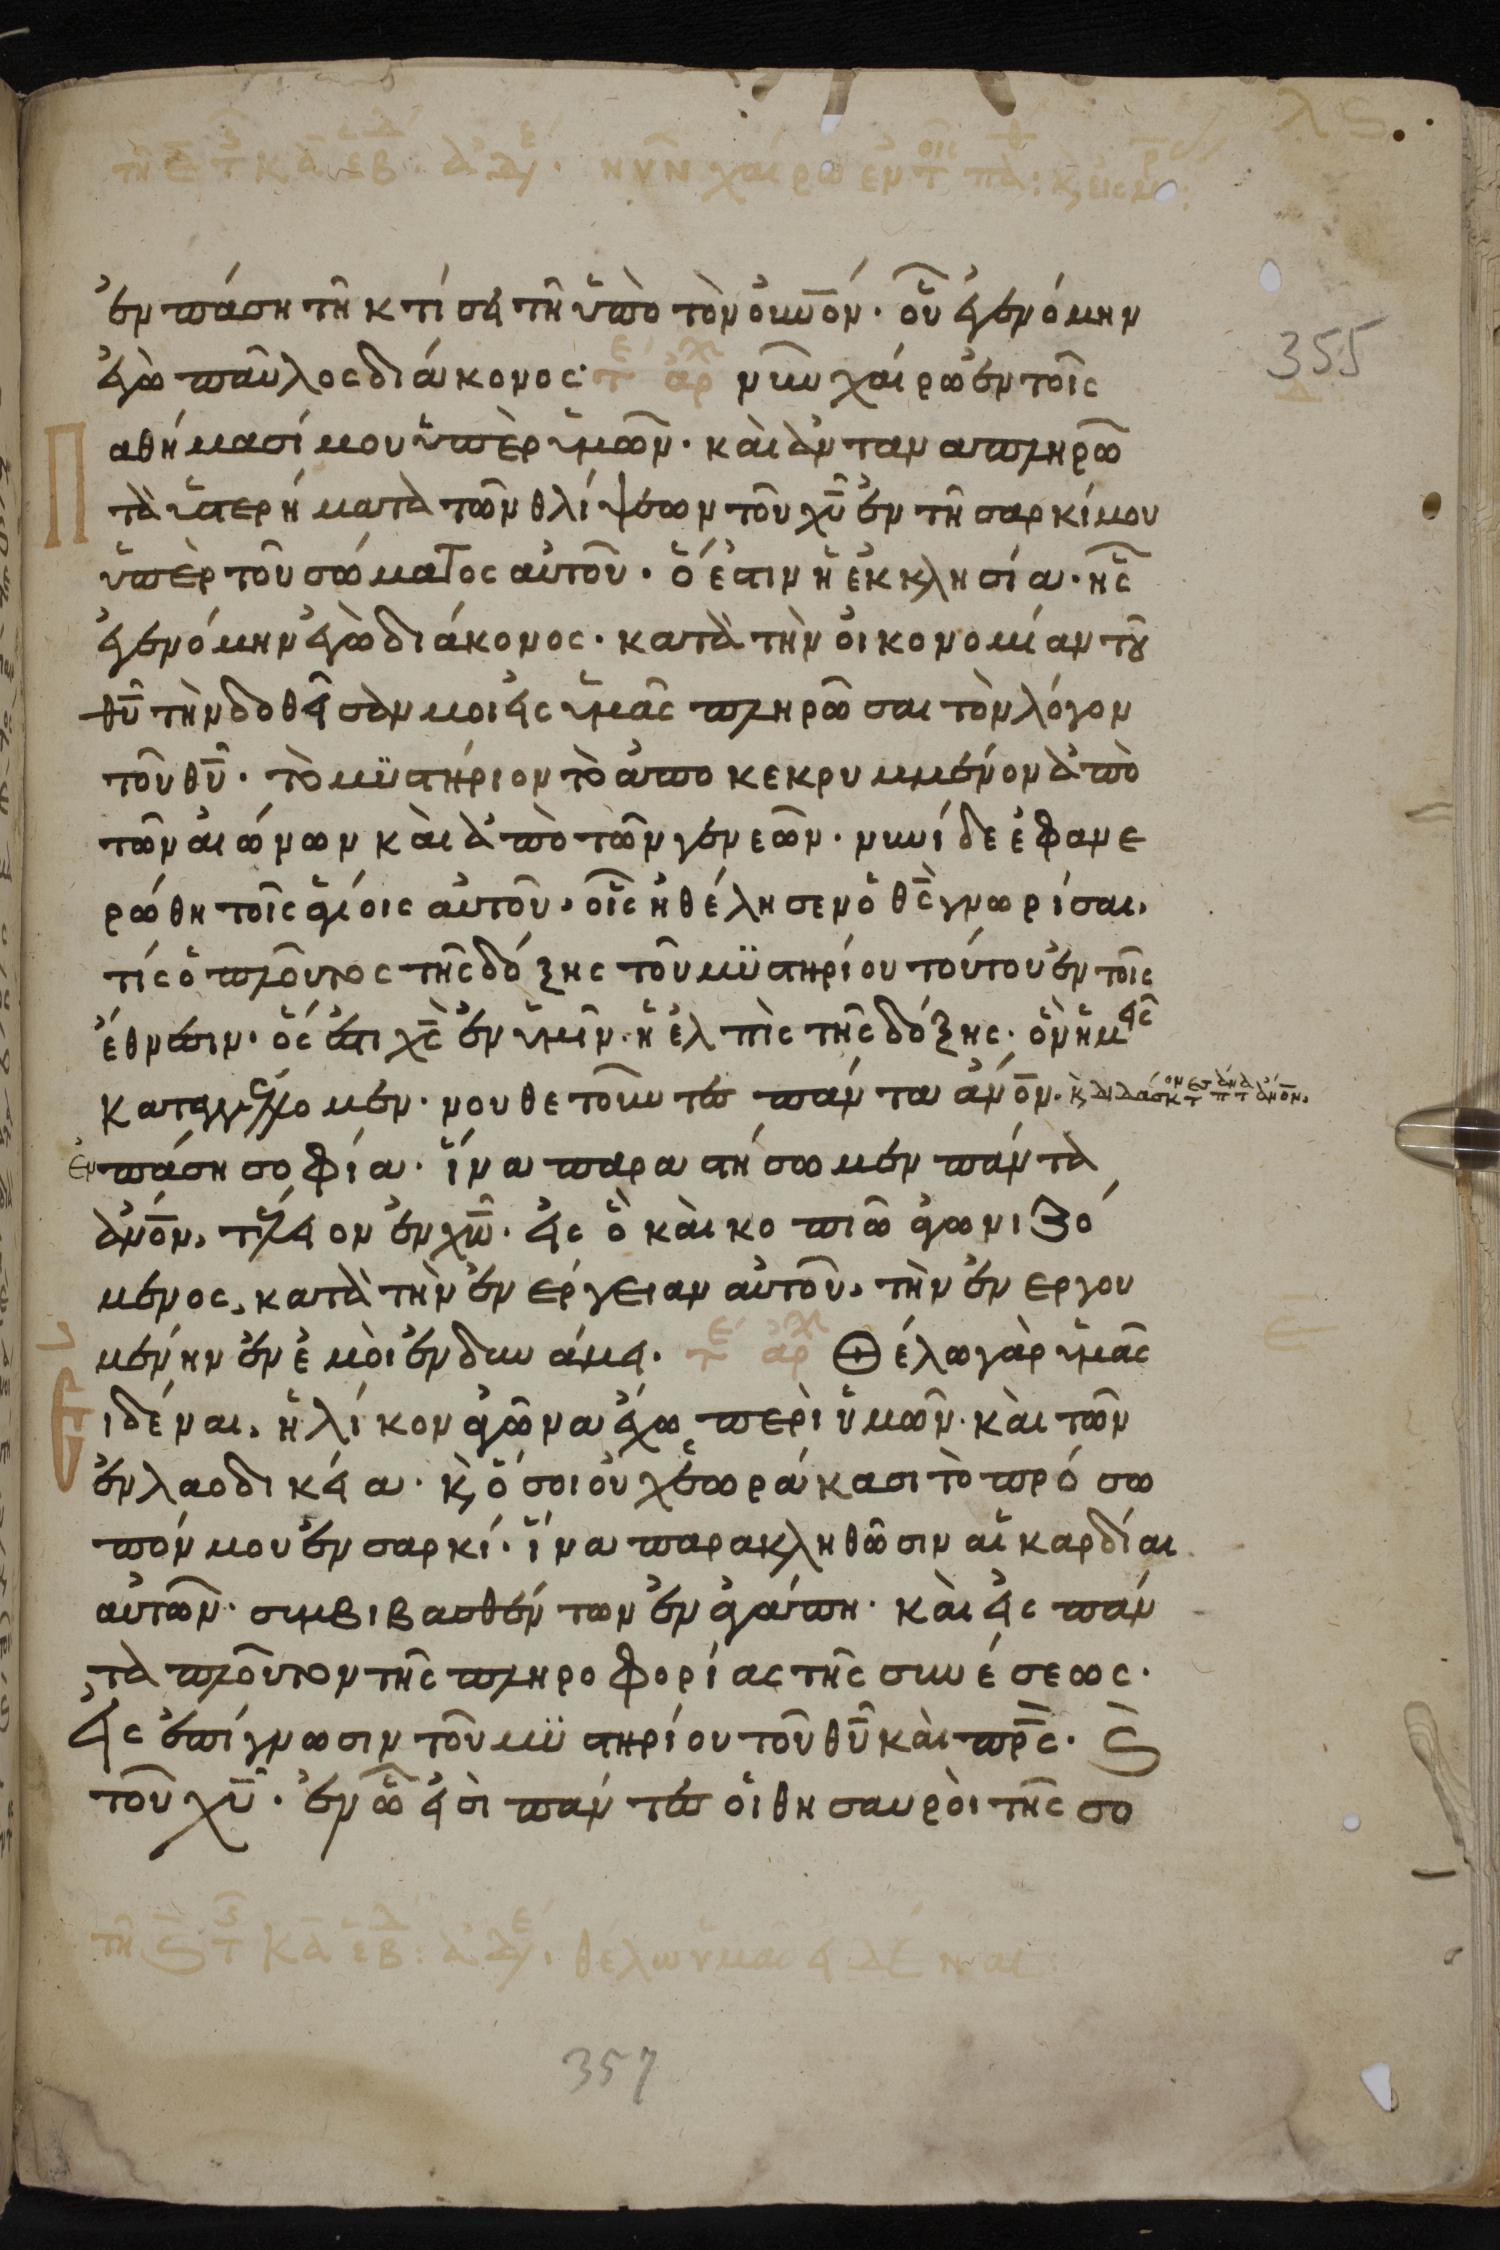 λϛ
ἐν πάση τῆ κτίσει τῆ ὑπὸ τὸν οὐνόν. οὗ ἐγενόμην
355
ἐγὼ παῦλος διάκονος· τ ἀρ νῦν χαίρω ἐν τοῖς
αθήμασί μου ὑπὲρ ὑμῶν. καὶ ἀνταναπληρῶ
Π
τὰ ὑστερήματα τῶν θλίψεων τοῦ χῦ ἐν τῆ σαρκί μου
ὑπὲρ τοῦ σώματος αὐτοῦ. ὅ ἐστιν ἡ ἐκκλησία. ἧς
ἐγενόμην ἐγὼ διάκονος. κατὰ τὴν οἰκονομίαν τοῦ
θῦ τὴν δοθεῖσάν μοι εἰς ὑμᾶς πληρῶσαι τὸν λόγον
τοῦ θῦ. τὸ μϋστήριον τὸ ἀποκεκρυμμένον ἀπὸ
τῶν αἰώνων καὶ ἀπὸ τῶν γενεῶν. νυνί δε ἐφανε
ρώθη τοῖς ἁγίοις αὐτοῦ, οἷς ἠθέλησεν ὁ θς γνωρίσαι,
τίς ὁ πλοῦτος τῆς δόξης τοῦ μϋστηρίου τούτου ἐν τοῖς
ἔθνεσιν. ὅς ἐστι χς ἐν ὑμῖν. ἡ ἐλπὶς τῆς δόξης. ὃν ἡμεῖς
καταγγέλλομεν. νουθετοῦντες πάντα ἀνόν. κ διδάσκοντες πάντα ἀνον,
ἐν πάση σοφία. ἵνα παραστήσωμεν πάντα
ἀνόν, τέλειον ἐν χῶ. εἰς ὃ καὶ κοπιῶ ἀγωνιζό
μενος, κατὰ τὴν ἐνέργειαν αὐτοῦ, τὴν ἐνεργου
μένην ἐν ἐμοὶ ἐν δυνάμει. τ ἀρ Θέλω γὰρ ὑμᾶς
ἰδέναι, ἡλίκον ἀγῶνα ἔχω περὶ ὑμῶν. καὶ τῶν
ἐν λαοδικεία. κ ὅσοι οὐχ ἑωράκασι τὸ πρόσω
πόν μου ἐν σαρκί. ἵνα παρακληθῶσιν αἱ καρδίαι
αὐτῶν. συμβιβασθέντων ἐν ἀγάπη. καὶ εἰς πάν
τα πλοῦτον τῆς πληροφορίας τῆς συνέσεως.
εἰς ἐπίγνωσιν τοῦ μϋστηρίου τοῦ θῦ καὶ πρς. ϛ
τοῦ χῦ. ἐν ὧ εἰσὶ πάντες οἱ θησαυρὸι τῆς σο
357